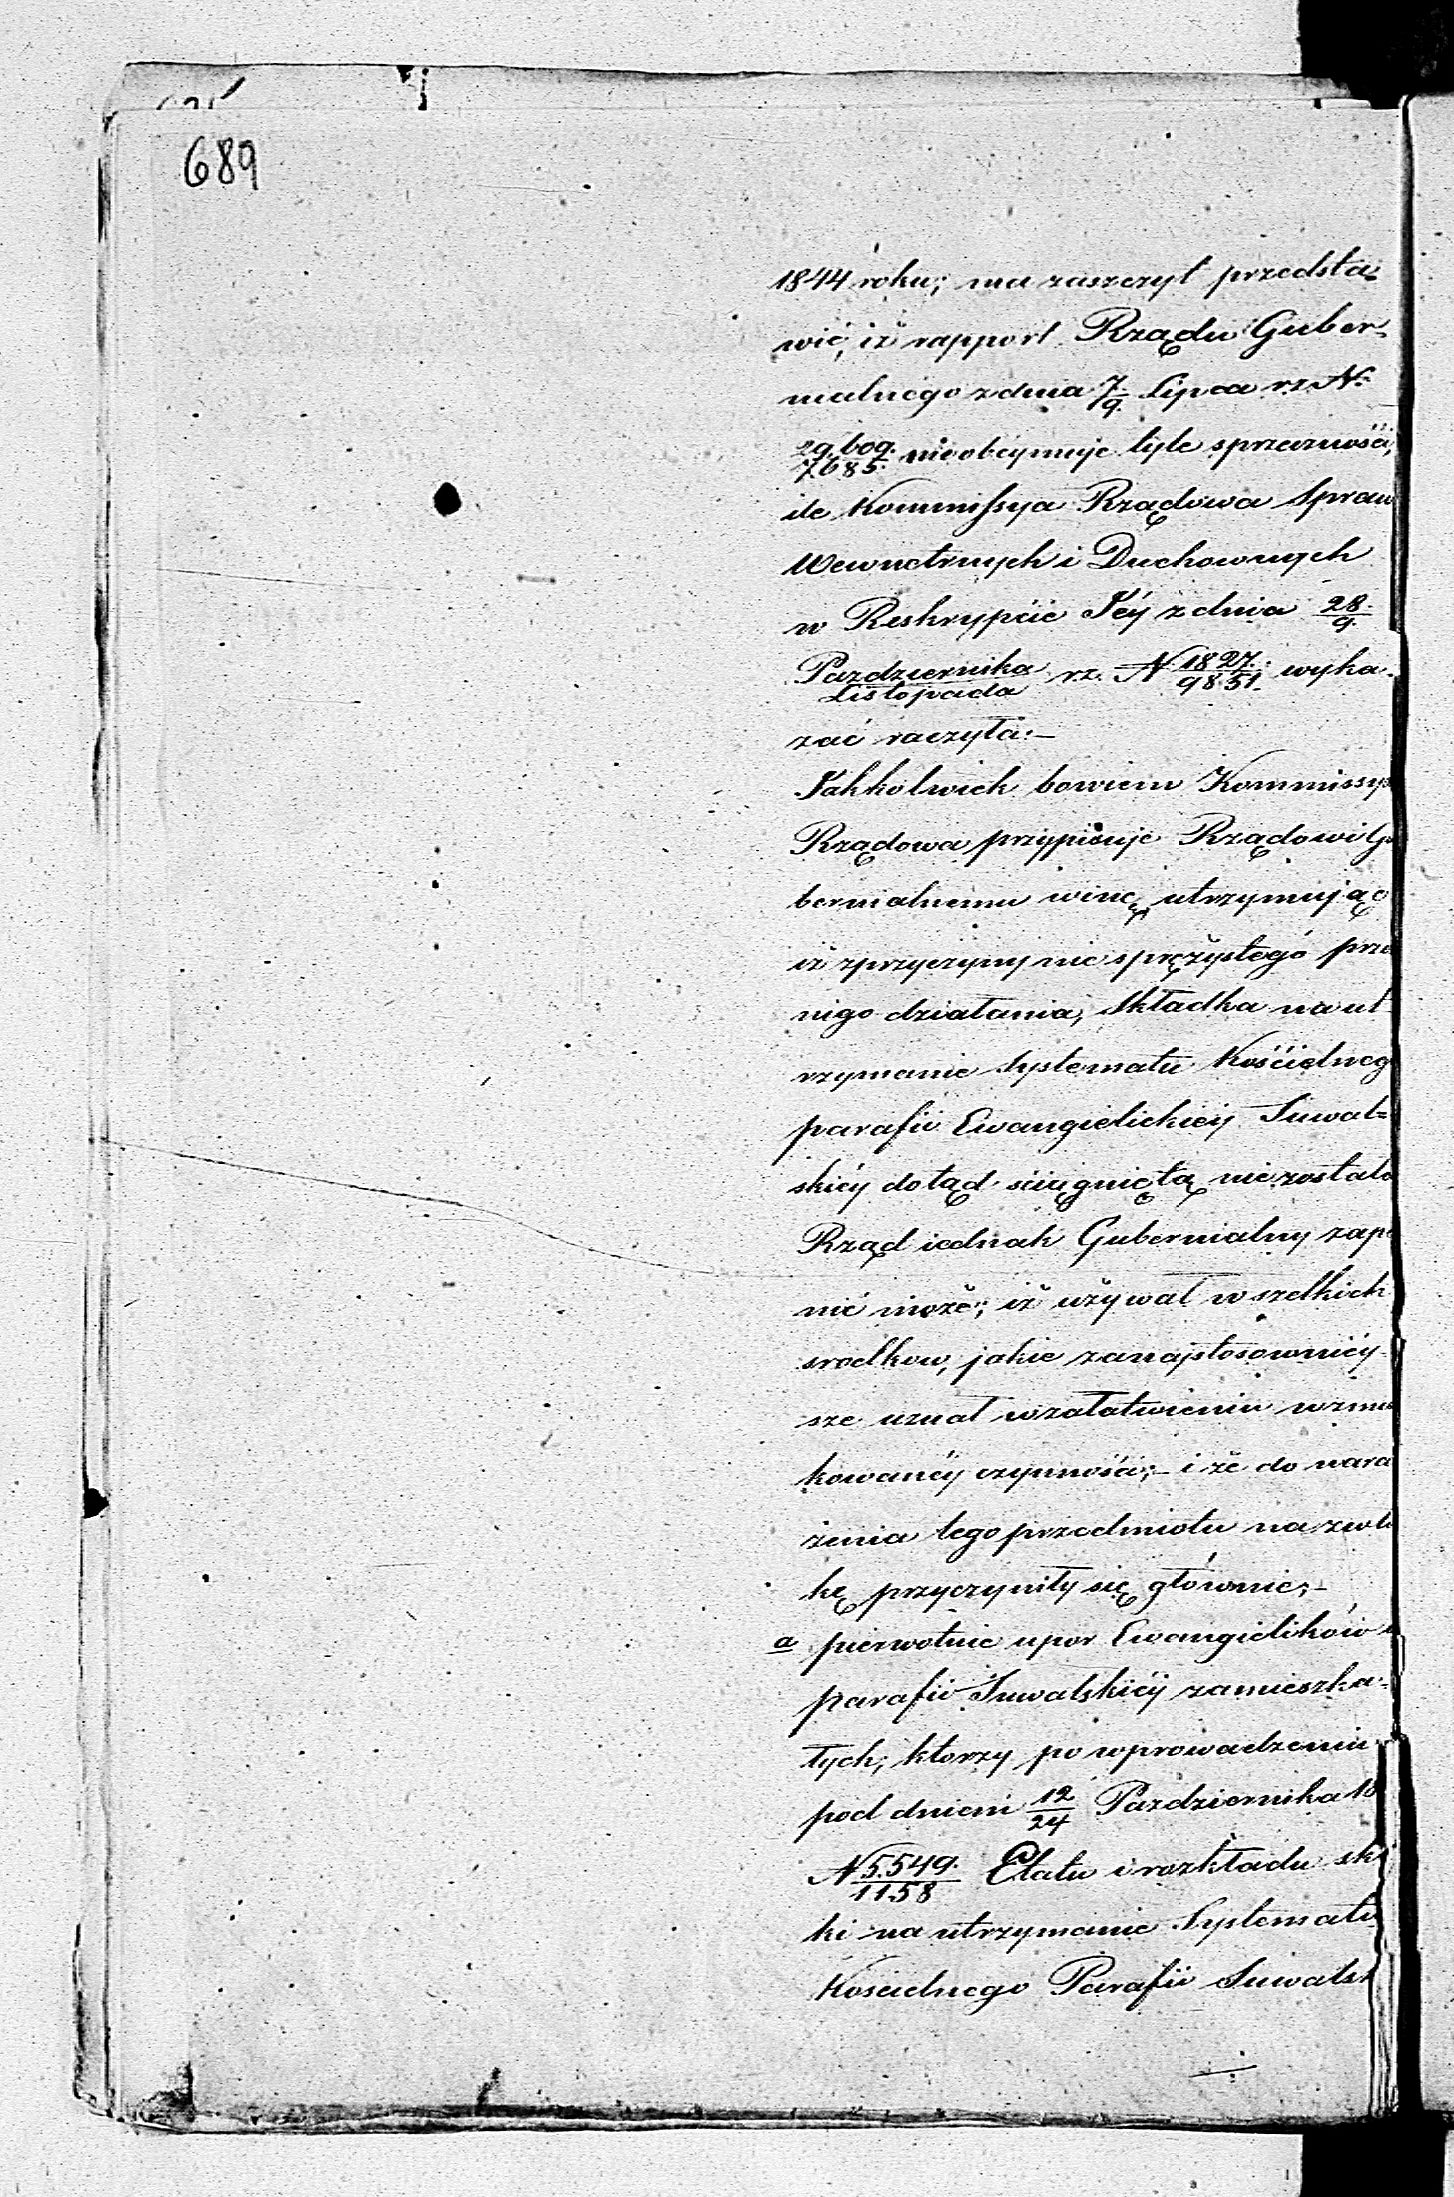 689
1844 roku; ma zaszczyt przedsta-
wić, iż rapport Rządu Guber-
nialnego z dnia 7/9. Lipca r.z. N:
29.609./7685. nieobéymuje tyle sprzeczności,
ile Kommissya Rządowa Spraw
Wewnetrznych i Duchownych
w Reskrypcie Jéy z dnia 28./9.
Pazdziernika/Listopada r.z. N 1827./9851. wyka-
zać raczyła:–
Jakkolwiek bowiem Kommissya
Rządowa przypisuje Rządowi Gu
bernialnemu winę, utrzymując
iż zprzyczyny nie sprężystego prze
nigo działania, Składka na ut-
rzymanie Systematu Kościelneg
parafii Ewangielickiéy Suwal=
skiéy dotąd ściągniętą niezostała
Rząd iednak Gubernialny zape
nić może; iż używał wszelkich
srodkow, jakie zanajstosowniéy-
sze uznał wzałatwieniu wzmi
kowanéy czynności;– i że do nara
żenia tego przedmiotu nazwło
kę przyczyniły się głównie;–
a pierwotnie upor Ewangielików w
parafii Suwalskiéy zamieszka-
łych; ktorzy po wprowadzeniu
pod dniem 12/24 Pazdziernika 18
N 5.549./1158 Etatu i rozkładu skł
ki na utrzymanie Systematu
Koscielnego Parafii Suwalsk